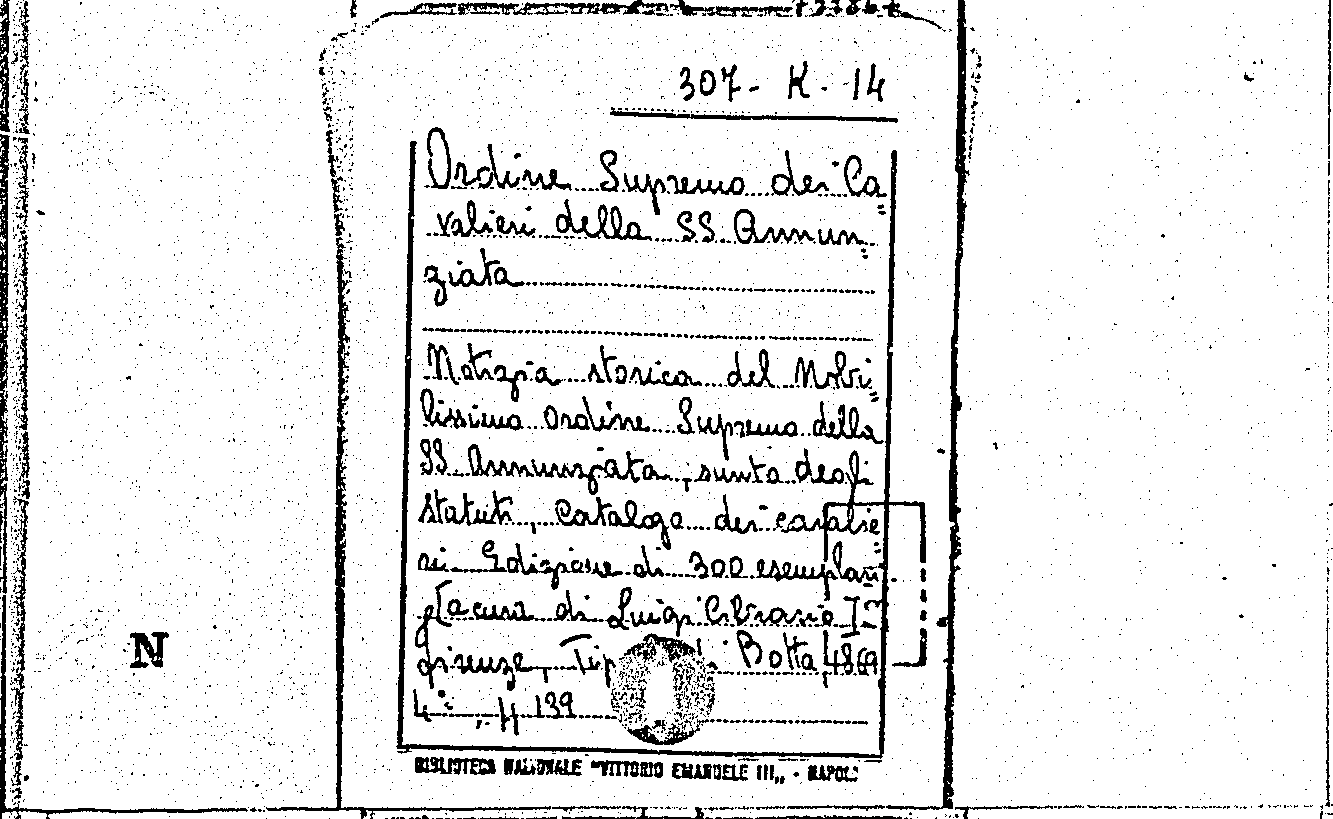 307 - K - 14
Ordine Supremo dei Ca=
valieri della SS Annun=
ziata
Notizia storica del Nobi=
lissimo Ordine Supremo della
SS Annunziata, sunto degli
statuti, Catalogo dei cavalie=
ri. Edizione di 300 esemplari
a cura di Luigi Cibrario
Firenze, Tip Botta, 1869
4°, 139
N
BIBLIOTECA NAZIONALE "VITTORIO EMANUELE III" - NAPOLI